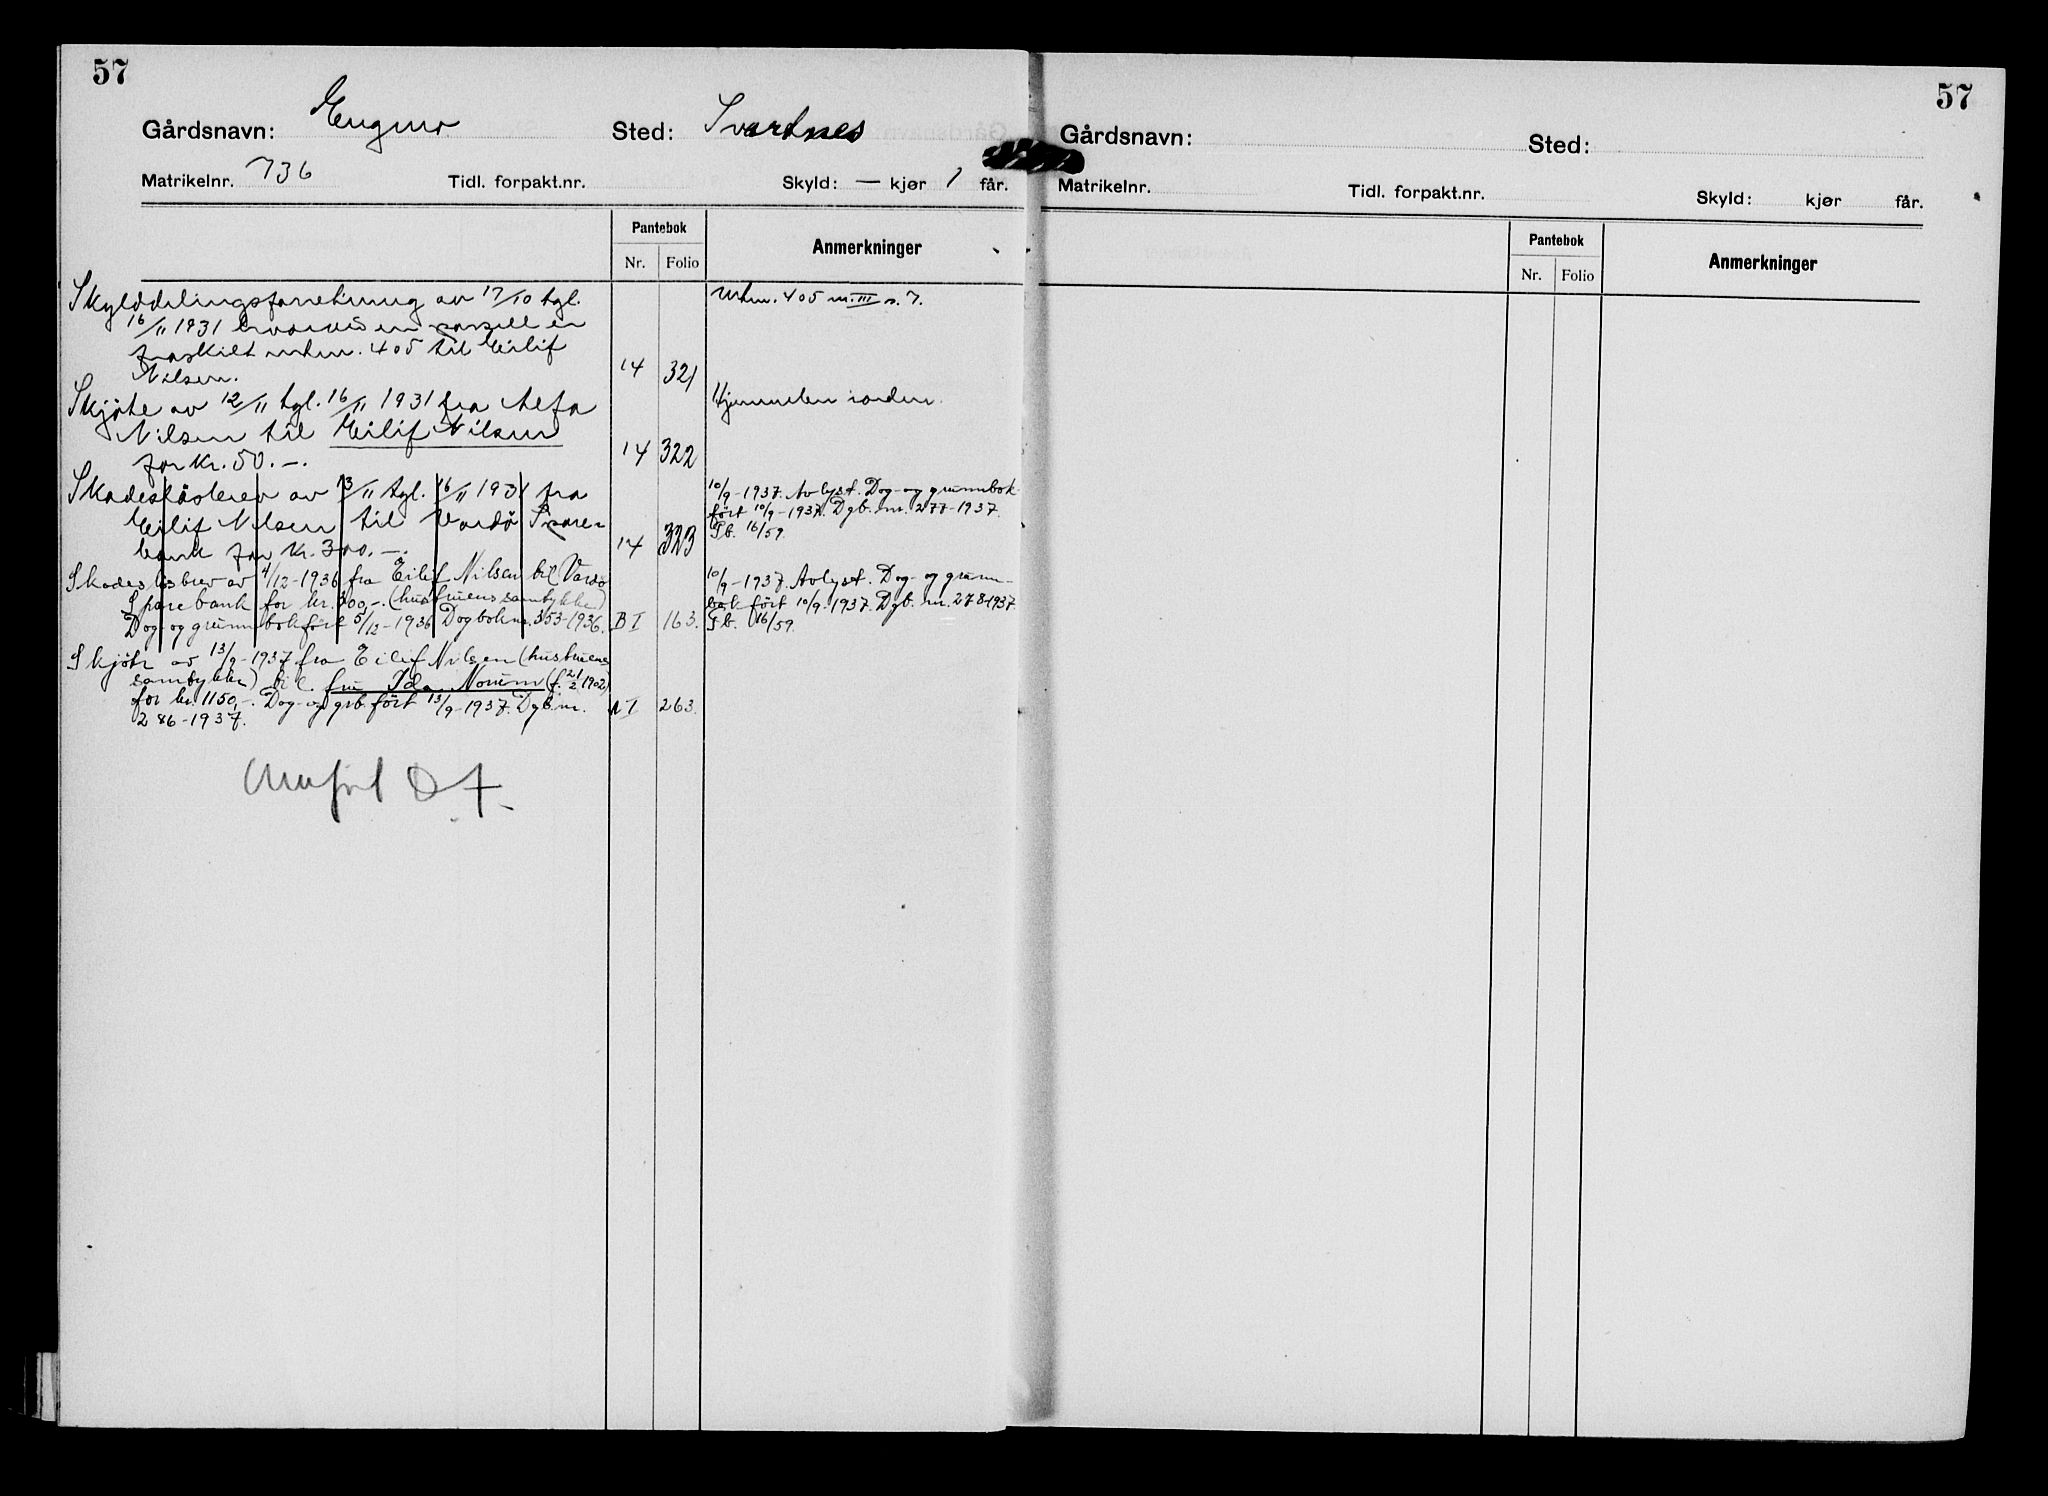 57
Gårdsnavn: Engmo Sted: Svartnes
Matrikelnr. 736 Tidl. forpakt.nr. Skyld: — kjør 1 får.
Pantebok
Nr. Folio Anmerkninger
Skylddelingsforretning av 17/10 tgl.
16/11 1931 hvorved en parsell er
fraskilt mtnr. 405 til Eilif
Nilsen. 14 321
Mtnr. 405 m. III s. 7.
Skjøte av 12/11 tgl. 16/11 1931 fra
Nilsen til Eilif Nilsen
for kr. 50.—. 14 322
Hjemmelen iorden.
Skadesløsbrev av 13/11 tgl. 16/11 1931 fra
Eilif Nilsen til Vardö Spare-
bank for kr. 300.—. 14 323
10/9-1937. Avlyst. Dag- og grunnbok-
ført 10/9-1937. Dgb. nr. 277-1937.
Pb. 16/59.
Skadesløsbrev av 4/12-1936 fra Eilif Nilsen til Vardø
Sparebank for kr. 300,-. (hustruens samtykke)
Dag- og grunnbokført 5/12-1936 Dagboknr. 353-1936. B I 163.
10/9-1937. Avlyst. Dag- og grunn-
bok ført 10/9-1937. Dgb. nr. 278-1937.
Pb. 16/59.
Skjøte av 13/9-1937 fra Eilif Nilsen (hustruens
samtykke) til fru Ida Norum (f. 21/2 1902)
for kr. 1150,-. Dag- og grb. ført 13/9-1937. Dgb. nr.
286-1937. A I 263.
57
Gårdsnavn: Sted:
Matrikelnr. Tidl. forpakt.nr. Skyld: kjør får.
Pantebok
Nr. Folio Anmerkninger